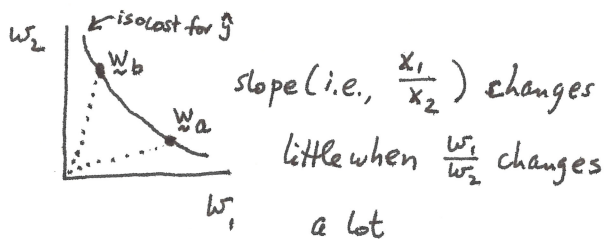 isocost for ŷ
w₂
w_b
w_a
w₁
slope (i.e., x₁/x₂) changes
little when w₁/w₂ changes
a lot